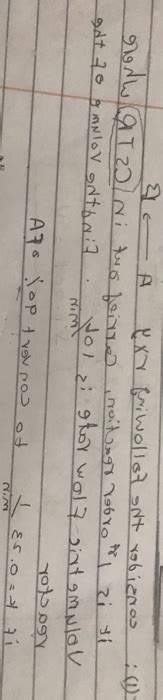 (1): consider the following rxn A → B
it is 1st order reaction, carried out in (CSTR) where
volumetric flow rate is 10 l/min . Find the volume of the
reactor to convert 90% of A if k = 0.23 1/min